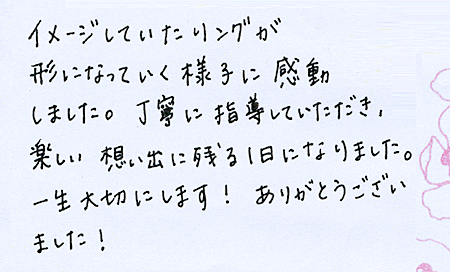 イメージしていたリングが
形になっていく様子に感動
しました。丁寧に指導していただき、
楽しい想い出に残る1日になりました。
一生大切にします！ありがとうござい
ました！